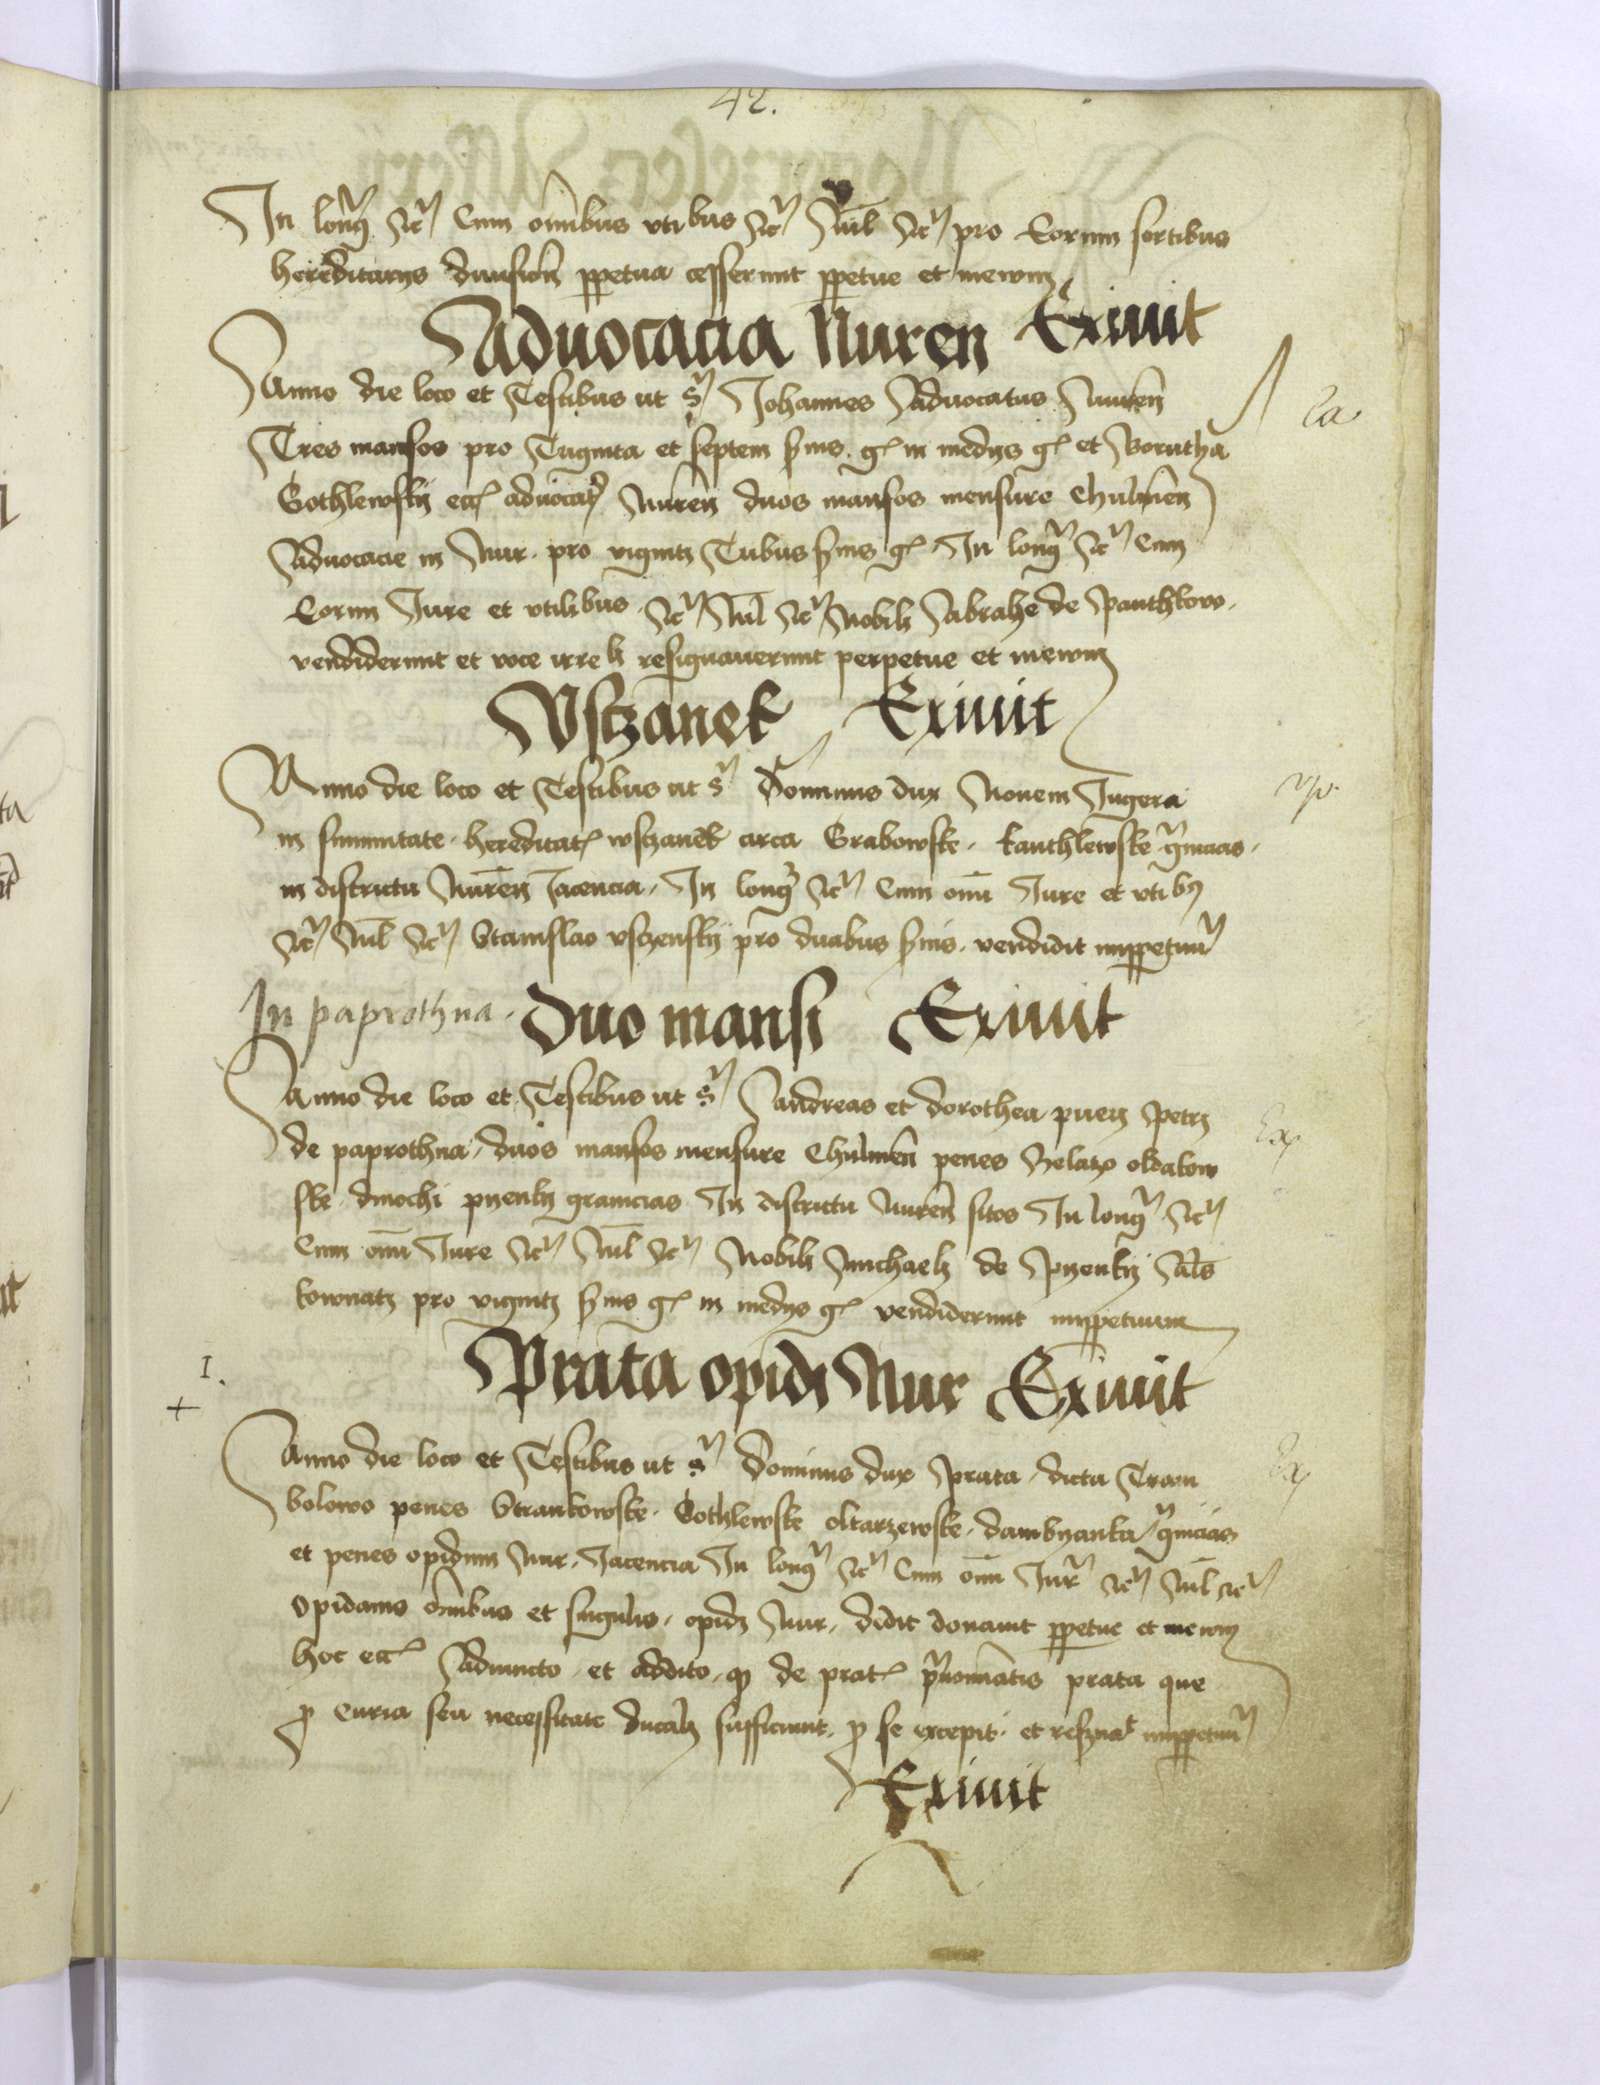 42.
In longu etc Cum omibus vtibus etc Nul etc pro Eorum sortibus
hereditarys diuision ppetua cesserunt ppetue et in ewm
Aduocacia Nuren Exiuit
Anno die loco et Testibus ut s Johannes Aduocatus Nuren
Tres mansos pro Triginta et septem sexis g in medys g et Borutha
Gothlewsky ecz aduocat Nuren duos mansos mensure Chulmen
Aduocacie in Nur pro viginti Tribus sexis g In longu etc Cum
Eorum Jure et vtilibus etc Nul etc Nobili Abrahe de Panthlowo
vendiderunt et voce irreli resignauerunt perpetue et in ewm
Wschanek Exiuit
Anno die loco et Testibus ut s Dominus dux Nouem Jugera
in summitate hereditat wschanek circa Grabowske kauthlewske gnicias
in districtu Nuren Jacencia In longu etc Cum omi Jure et vtibus
etc Nul etc Stanislao vschensky pro duabus sexis vendidit inppetuum
In paprothna duo mansi Exiuit
Anno die loco et Testibus ut s Andreas et dorothea pueri Petri
de paprothna duos mansos mensure Chulmen penes Zelazo oldakow
ske dmochi pyenky granicias In districtu Nuren sitos In longu etc
Cum omi Jure etc Nul etc Nobili Michaeli de Pyenky Als
kownatz pro viginti sexis g in medys g vendiderunt inppetuum
Prata opidi Nur Exiuit
I.
Anno die loco et Testibus ut s Dominus dux Prata dicta Tran
bolowo penes Strankowske Gothlewske oltarzewske dambyanka gnicias
et penes opidum Nur Jacencia In longu etc Cum omi Jur etc Nul etc
opidanis omibus et singulis opidi Nur dedit donauit ppetue et in ewm
hoc ecz Adiuncto et addito q de prat pnominatis prata que
p Curia seu necessitate ducali sufficiunt p se excepit et resruat inppetuum
Exiuit